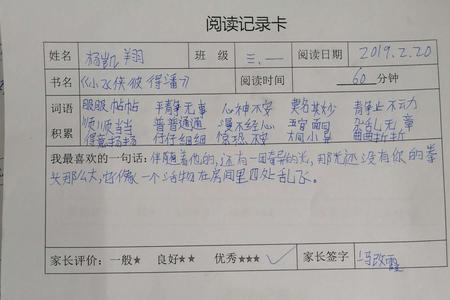 阅读记录卡
姓名 杨凯翔 班 级 三.一 阅读日期 2019.2.20
书名 《小飞侠彼得潘》 阅读时间 60 分钟
词语 服服帖帖 平静无事 心神不安 莫名其妙
积累 顺顺当当 普普通通 漫不经心 五官
得意扬扬 仔仔细细 大同小异
我最喜欢的一句话：伴随着他的，还有一团奇异的光，那光还没有你的拳
头那么大，它像一个活物在房间里四处乱飞。
家长评价：一般★ 良好★★ 优秀★★★ ✓ 家长签字 冯改霞